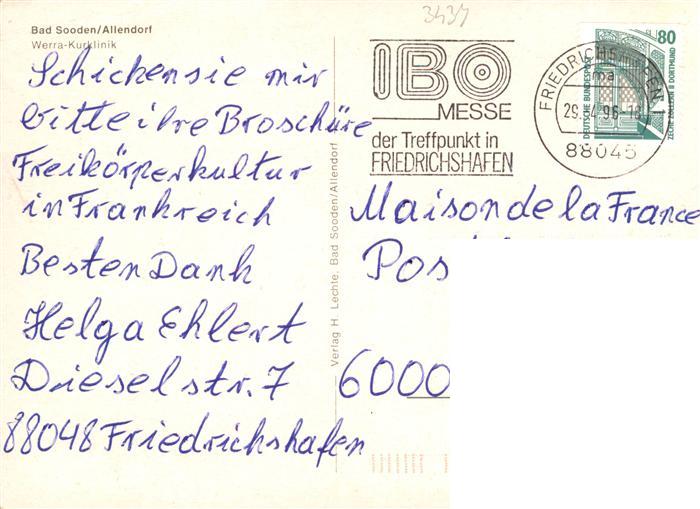 3437
Bad Sooden/Allendorf
Werra-Kurklinik
Schicken sie mir
bitte ihre Broschüre
Freikörperkultur
in Frankreich
Besten Dank
Helga Ehlert
Dieselstr. 7
88048 Friedrichshafen
Verlag H. Lechte, Bad Sooden/Allendorf
IBO
MESSE
der Treffpunkt in
FRIEDRICHSHAFEN
FRIEDRICHSHAFEN
ma
88045
80
DEUTSCHE BUNDESPOST
ZECHE ZOLLERN II DORTMUND
Maison de la France
Pos
6000